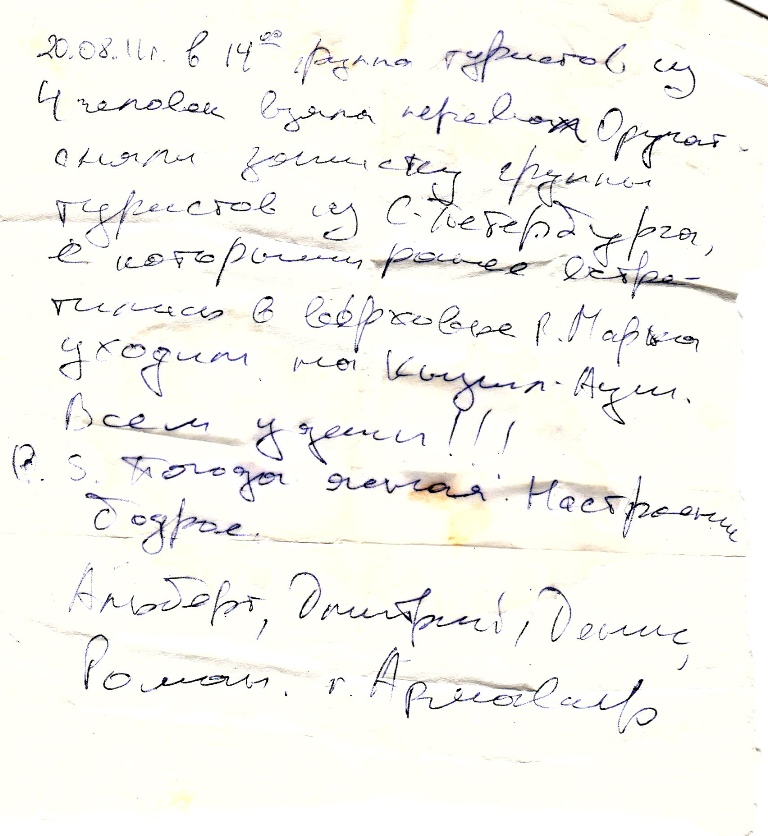 20.08.11г. в 14⁰⁰ группа туристов из
4 человек взяла перевал Оручат.
сняли записку группы
туристов из С-Петербурга,
с которыми ранее встре-
тились в верховье р. Марка
уходим на Кызыл-Ауш.
Всем удачи!!!
P. S. Погода ясная. Настроение
бодрое.
Альберт, Дмитрий, Денис,
Роман. г. Армавир